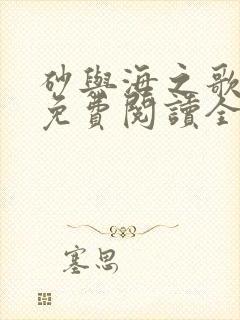 砂與海之歌
免費閱讀全
塞思